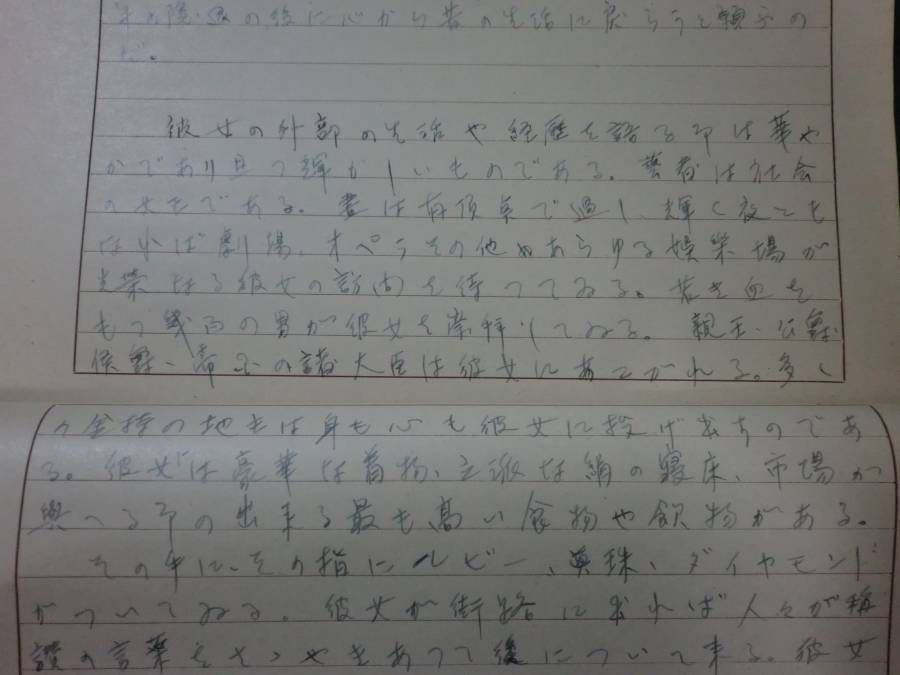 の後に心から昔の生活に戻らうと願ふの
だ。
彼女の外部の生活や経歴を語る即は華や
かであり且つ輝かしいものである。芸者は社会
の女王である。昼は有頂卓で過し、輝く夜とも
なれば劇場、オペラその他のあらゆる娯楽場が
光栄なる彼女の訪問を待つてゐる。若き血を
もつ幾百の男が彼女を崇拝してゐる。親王、公爵
侯爵、の諸大臣は彼女にあこがれる。多く
の金持の地主は身も心も彼女に投げ出すのであ
る。彼女には豪華な着物、立派な絹の寝床、市場が
與へる即の出来る最も高い食物や飲物がある。
その手に、その指にルビー、真珠、ダイヤモンド
がついてゐる。彼女が街路に出れば人々が称
讃の言葉をさゝやきあつて後について来る。彼女